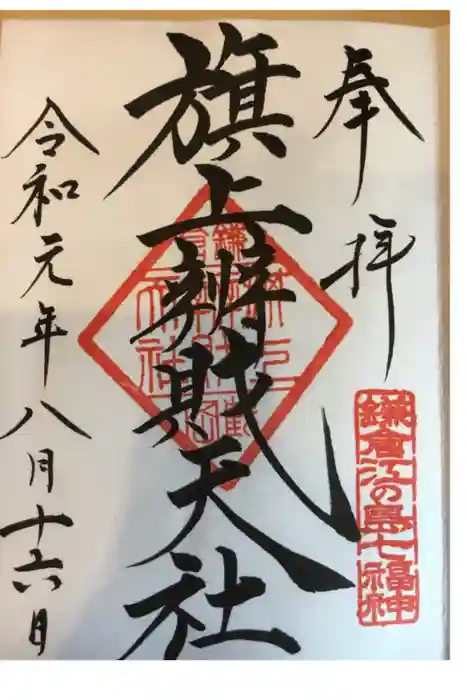 奉拝
鎌倉江の島七福神
旗上辨財天社
令和元年八月十六日